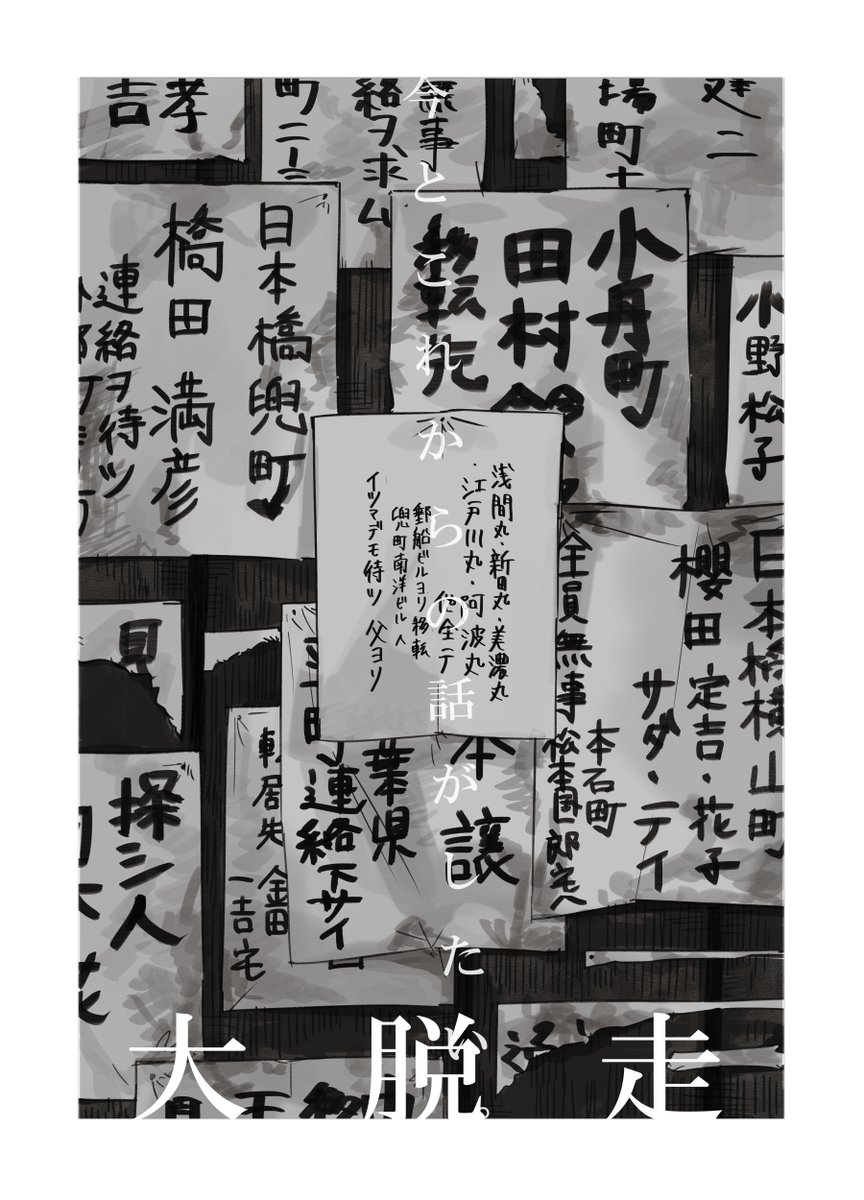 建二
場町十
無事
絡ヲ求ム
町二
孝
吉
小野松子
小舟町
田村
移転先
日本橋兜町
橋田満彦
連絡ヲ待ツ
浅間丸・新田丸・美濃丸
・江戸川丸・阿波丸
全テ
郵船ビルヨリ移転
兜町南洋ビル人
イツマデモ待ツ 父ヨリ
日本橋横山町
櫻田定吉・花子
サダ・テイ
本石町
松本国郎宅へ
全員無事
譲
葉県
町連絡下サイ
転居先 金田
一吉宅
見
探シ人
今とこれからの話がしたい。
大脱走